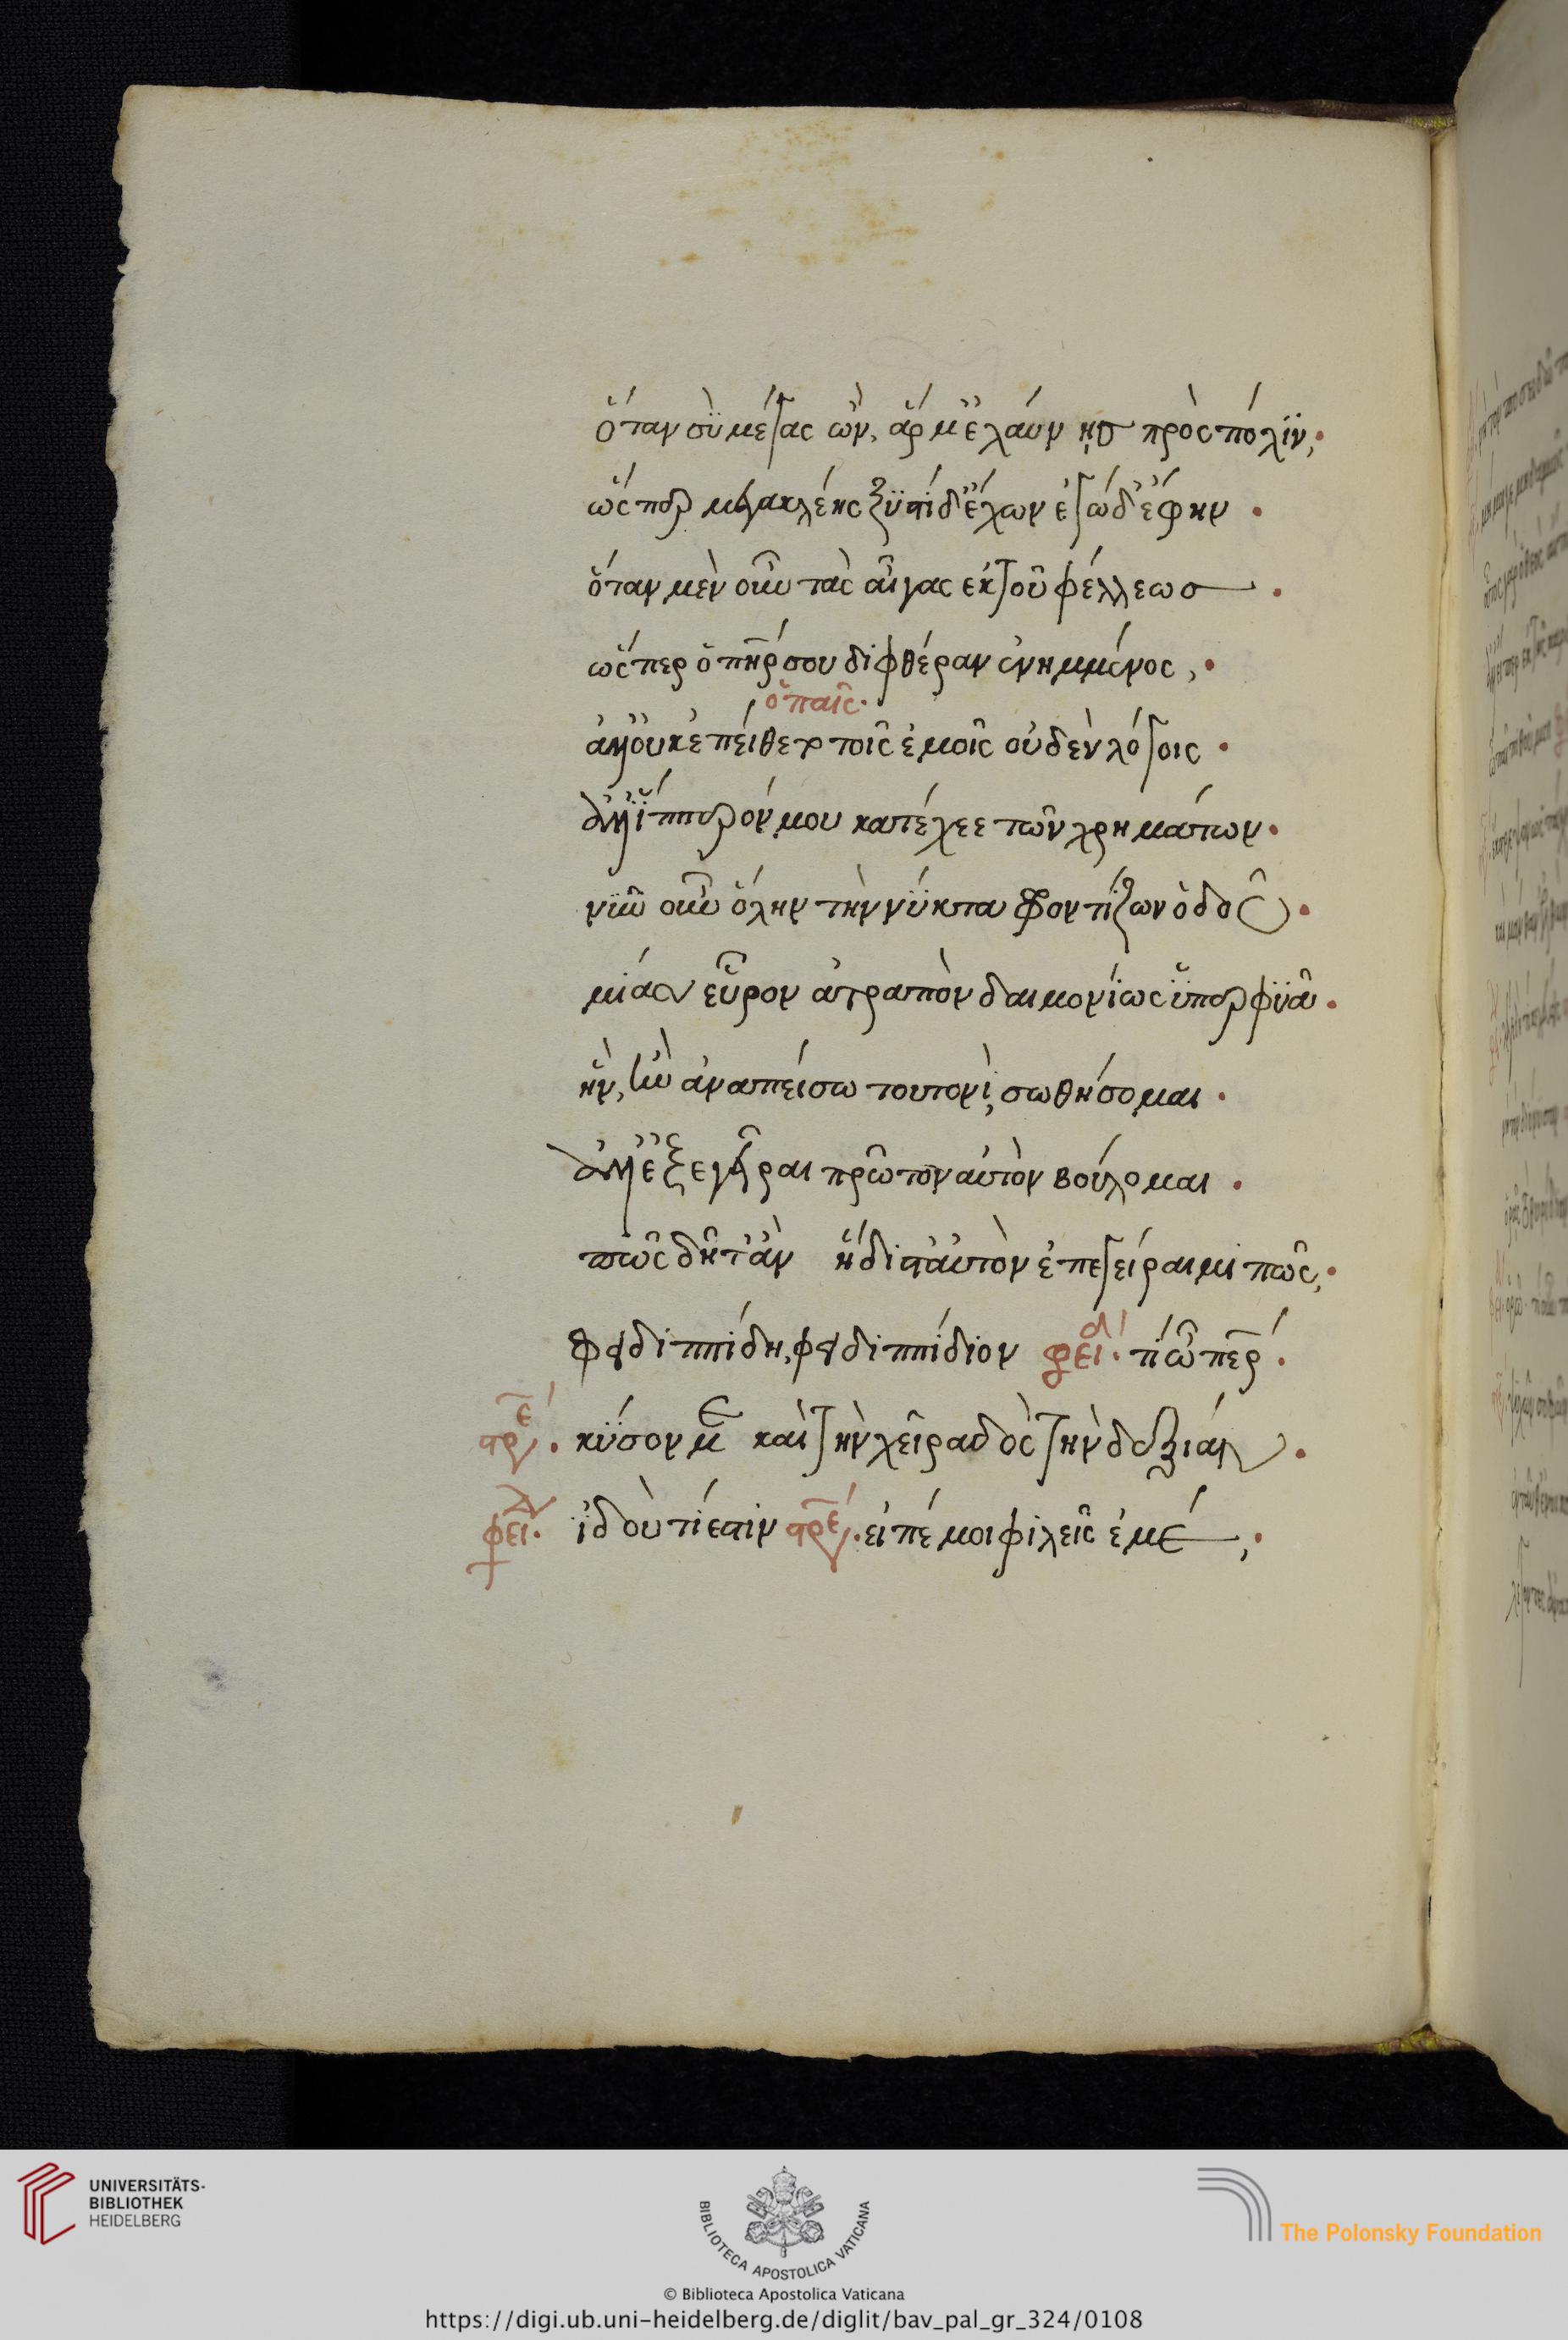 ὅταν σὺ μέγας ὢν, ἅρμ' ἐλαύνῃς πρὸς πόλιν,
ὥσπερ μεγακλέης ξυστίδ' ἔχων ἐγὼ δ' ἔφην.
ὅταν μὲν οὖν τὰς αἶγας ἐκ τοῦ φέλλεως.
ὥσπερ ὁ πῆρ σου διφθέραν ἐνημμένος,.
ὁ παῖς.
ἀλλ' οὐκ ἐπείθετο τοῖς ἐμοῖς οὐδὲν λόγοις.
ἀλλ' ἵππερόν μου κατέχεε τῶν χρημάτων.
νῦν οὖν ὅλην τὴν νύκτα φροντίζων ὁδοῦ.
μίαν εὗρον ἀτραπὸν δαιμονίως ὑπερφυᾶ.
ἣν, ἢν ἀναπείσω τουτονὶ, σωθήσομαι.
ἀλλ' ἐξεγεῖραι πρῶτον αὐτὸν βούλομαι.
πῶς δῆτ' ἂν ἥδιστ' αὐτὸν ἐπεγείραιμι πῶς,.
Φειδιππίδη, φειδιππίδιον φειδ. τί ὦ περ.
στρε. κύσον με καὶ τὴν χεῖρα δὸς τὴν δεξιάν.
φειδ. ἰδοὺ τί ἐστιν στρε. εἰπέ μοι φιλεῖς ἐμέ,.
UNIVERSITÄTS-
BIBLIOTHEK
HEIDELBERG
BIBLIOTECA APOSTOLICA VATICANA
The Polonsky Foundation
© Biblioteca Apostolica Vaticana
https://digi.ub.uni-heidelberg.de/diglit/bav_pal_gr_324/0108